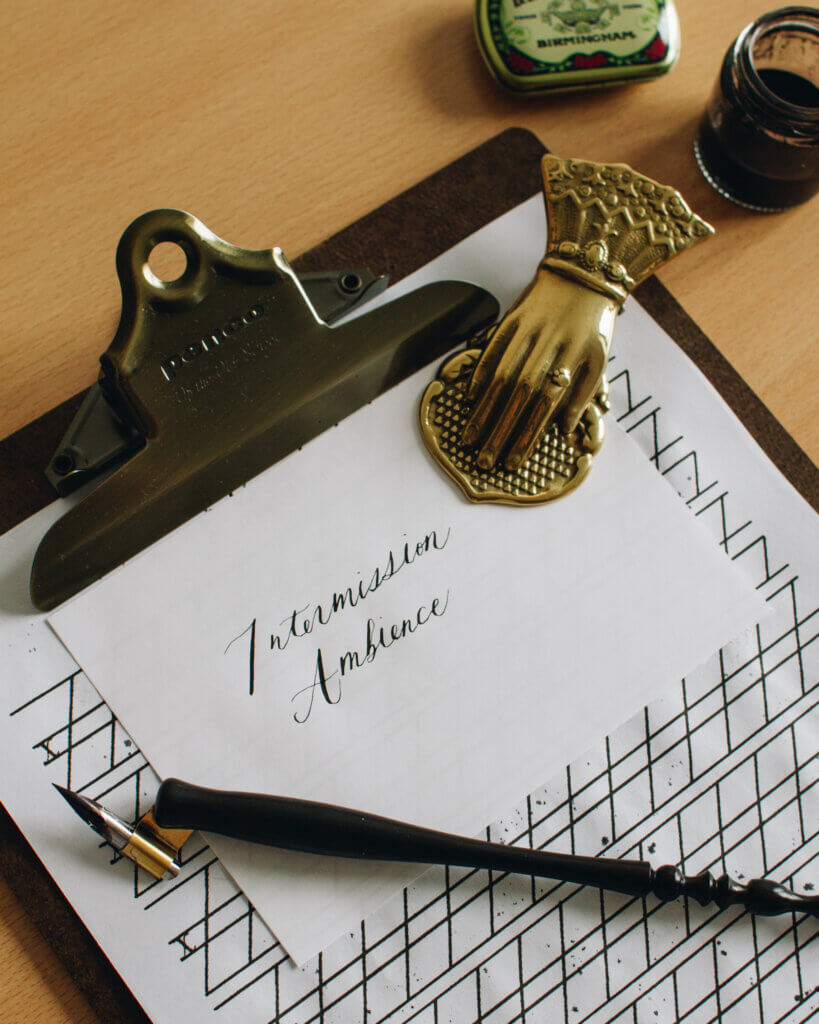 BIRMINGHAM
penco
Intermission
Ambience
x
x